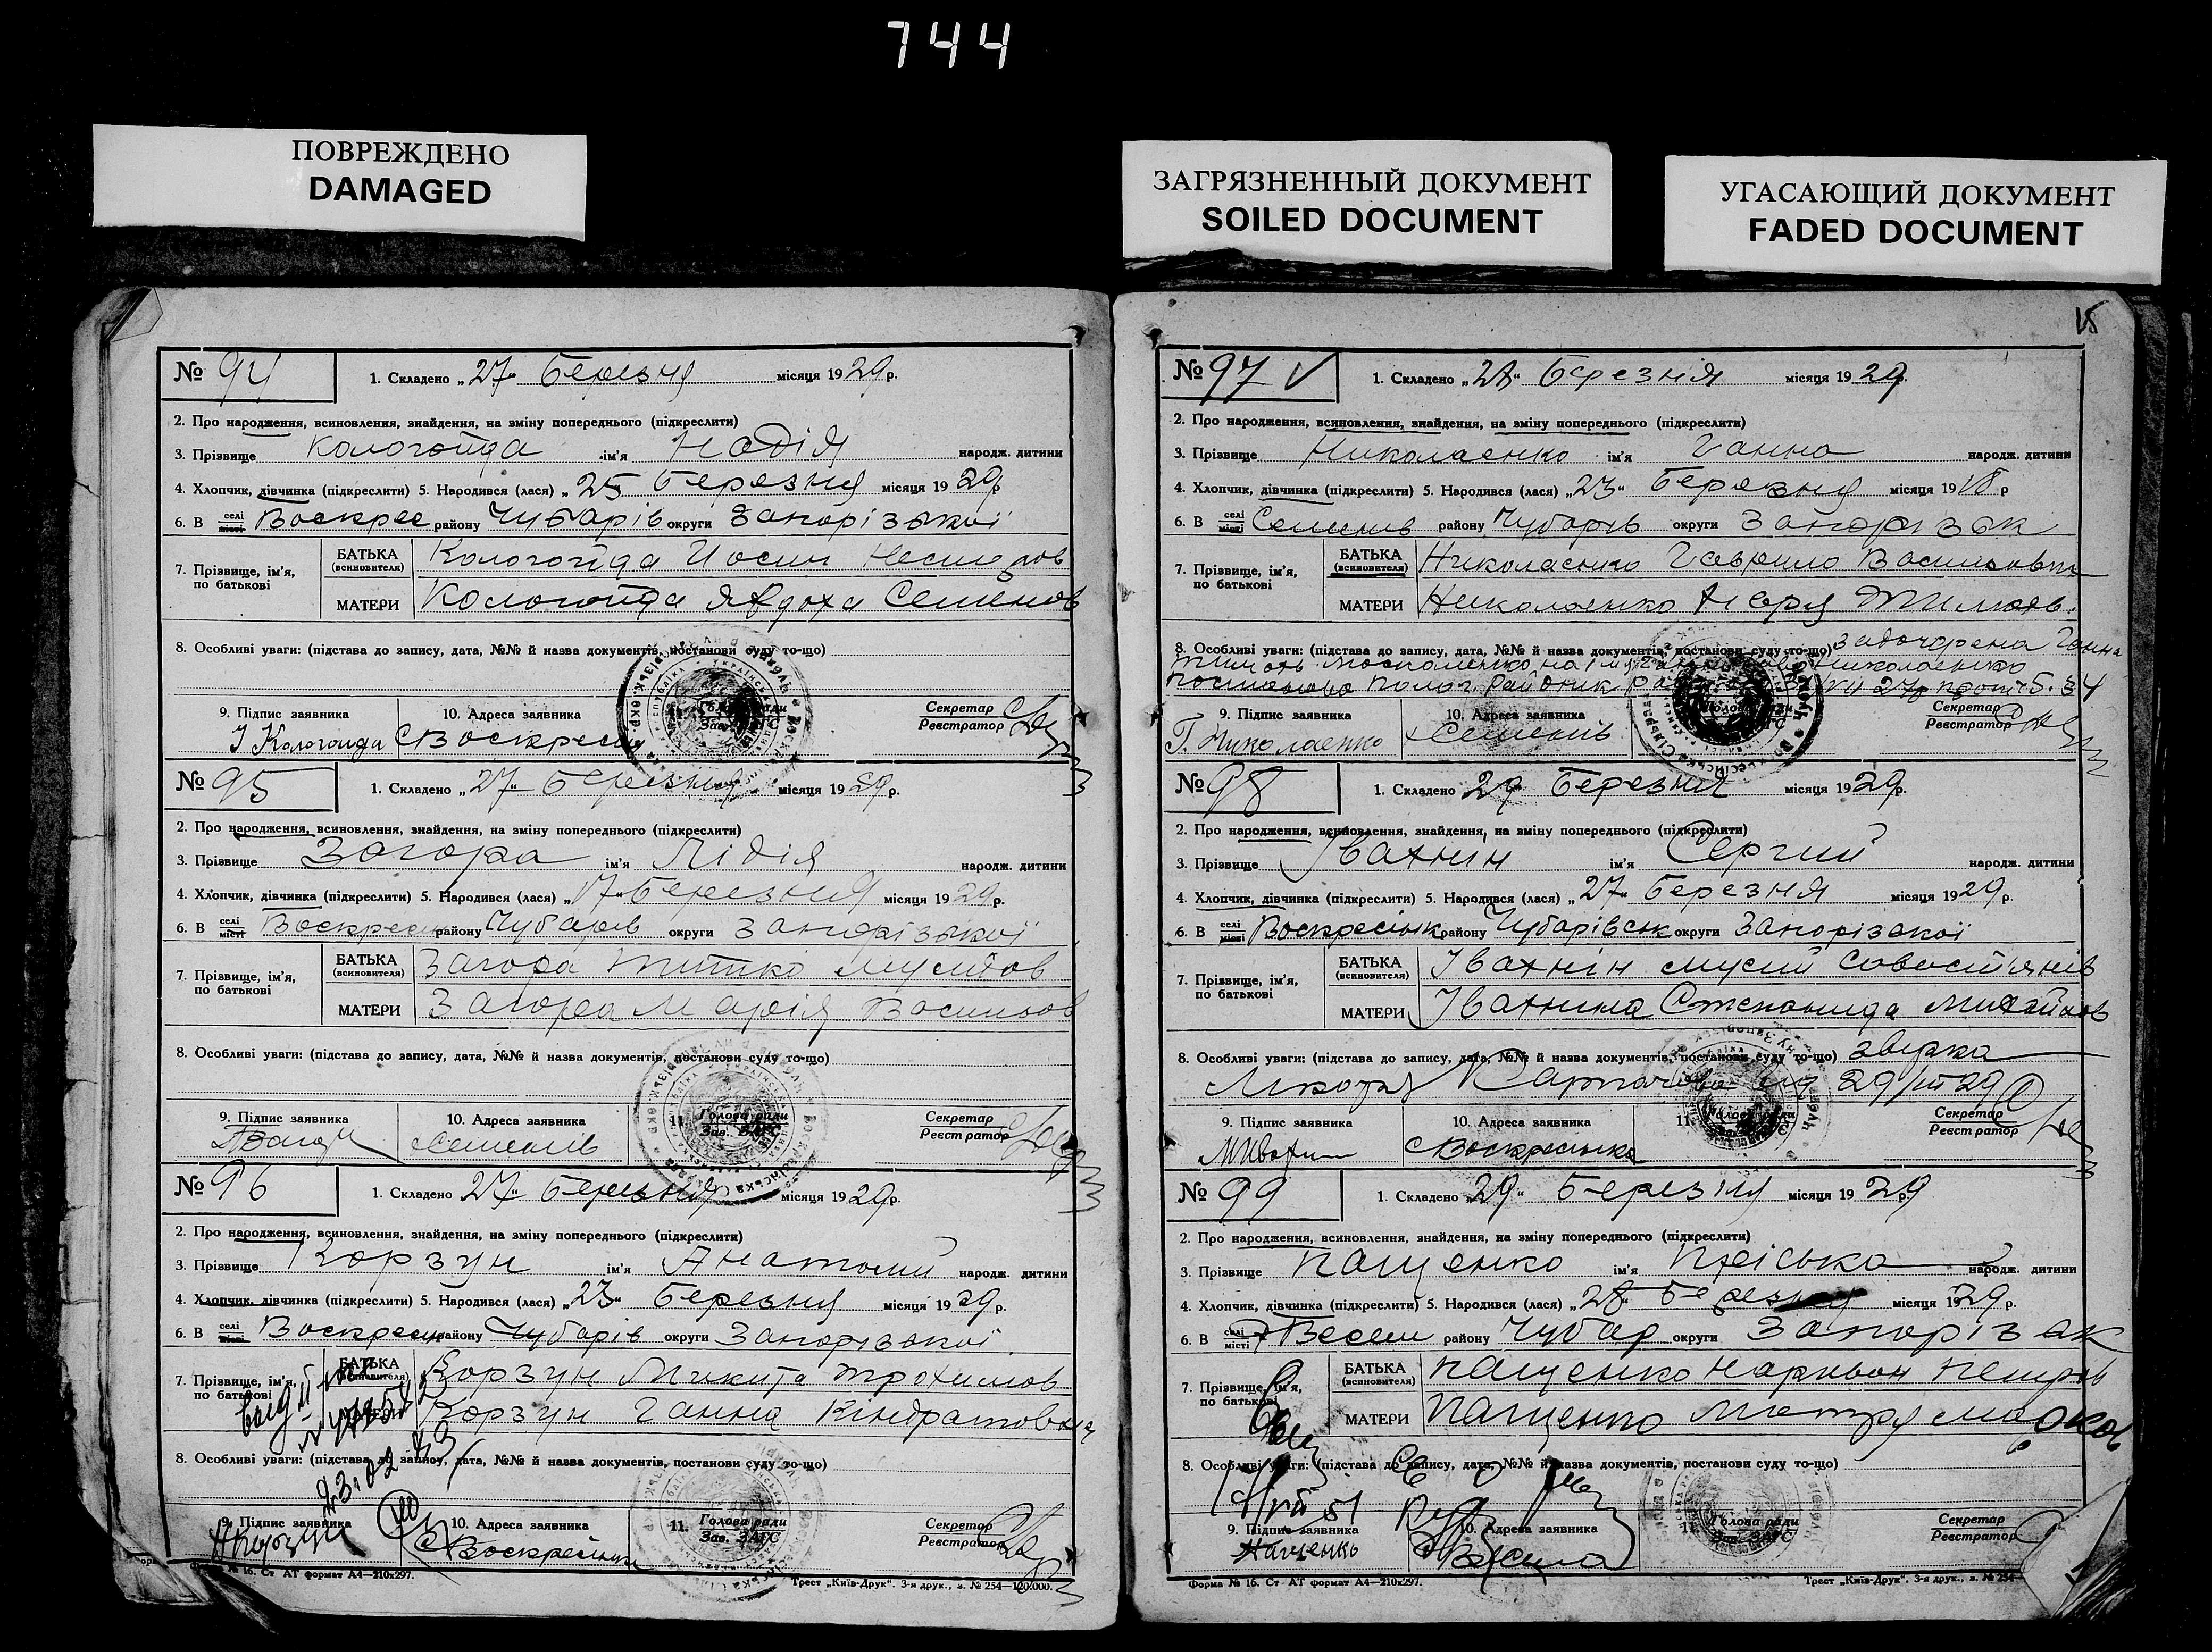 744
ПОВРЕЖДЕНО
DAMAGED
ЗАГРЯЗНЕННЫЙ ДОКУМЕНТ
SOILED DOCUMENT
УГАСАЮЩИЙ ДОКУМЕНТ
FADED DOCUMENT
№ 94 1. Складено „27“ Березня місяця 1929 р.
2. Про народження, всиновлення, знайдення, на зміну попереднього (підкреслити)
3. Прізвище Кологойда ім'я Надія народж. дитини
4. Хлопчик, дівчинка (підкреслити) 5. Народився (лася) „25 Березня місяця 1929 р
6. В селі місті Воскрес району Чубарів округи Запорізької
7. Прізвище, ім'я, по батькові
БАТЬКА (всиновителя) Кологойда Иосип
МАТЕРИ Кологойда Явдоха Семенов
8. Особливі уваги: (підстава до запису, дата, №№ й назва документів, постанови суду то-що)
9. Підпис заявника 10. Адреса заявника Голова ради Секретар
Зав. ЗАГС Реєстратор
І Кологоида С Воскресен
№ 95 1. Складено „27“ Березня місяця 1929 р.
2. Про народження, всиновлення, знайдення, на зміну попереднього (підкреслити)
3. Прізвище Загора ім'я Лідія народж. дитини
4. Хлопчик, дівчинка (підкреслити) 5. Народився (лася) „17“ Березня місяця 1929 р.
6. В селі місті району Чубарів округи Запорізької
7. Прізвище, ім'я, по батькові
БАТЬКА (всиновителя) Загора
МАТЕРИ Загора Марія Васильов
8. Особливі уваги: (підстава до запису, дата, №№ й назва документів, постанови суду то-що)
9. Підпис заявника 10. Адреса заявника 11. Голова ради Секретар
Зав. ЗАГС Реєстратор
Семенів
№ 96 1. Складено „27“ Березня місяця 1929 р.
2. Про народження, всиновлення, знайдення, на зміну попереднього (підкреслити)
3. Прізвище Корзун ім'я Анатолий народж. дитини
4. Хлопчик, дівчинка (підкреслити) 5. Народився (лася) „23“ Березня місяця 1929 р.
6. В селі місті району Чубарів округи Запорізької
7. Прізвище, ім'я, по батькові
БАТЬКА (всиновителя) Корзун Микита Трохимов
МАТЕРИ Корзун Ганна Кіндратовна
8. Особливі уваги: (підстава до запису, дата, №№ й назва документів, постанови суду то-що)
9. Підпис заявника 10. Адреса заявника 11. Голова ради Секретар
Зав. ЗАГС Реєстратор
Форма № 16. Ст АТ формат А4—210x297. Трест „Київ-Друк“. 3-я друк., з. № 254—120.000.
15
№ 97 V 1. Складено „28“ Березнія місяця 1929 р.
2. Про народження, всиновлення, знайдення, на зміну попереднього (підкреслити)
3. Прізвище Николаенко ім'я Ганна народж. дитини
4. Хлопчик, дівчинка (підкреслити) 5. Народився (лася) „23“ Березня місяця 1918 р
6. В селі місті Семенів району Чубарів округи Запорізьк
7. Прізвище, ім'я, по батькові
БАТЬКА (всиновителя) Николаенко Гаврило Васильович
МАТЕРИ Николаенко
8. Особливі уваги: (підстава до запису, дата, №№ й назва документів, постанови суду то-що) задочерена Ганна
9. Підпис заявника 10. Адреса заявника Голова ради Секретар
Реєстратор
Г. Николаенко Семенів
№ 98 1. Складено 29 Березня місяця 1929 р.
2. Про народження, всиновлення, знайдення, на зміну попереднього (підкреслити)
3. Прізвище Івахнін ім'я Сергий народж. дитини
4. Хлопчик, дівчинка (підкреслити) 5. Народився (лася) „27“ Березня місяця 1929 р.
6. В селі місті Воскресіньк району Чубарівськ округи Запорізької
7. Прізвище, ім'я, по батькові
БАТЬКА (всиновителя) Івахнін Мусий Совостьянів
МАТЕРИ Івахнина Степонида Михайлов
8. Особливі уваги: (підстава до запису, дата, №№ й назва документів, постанови суду то-що)
29/III 29
9. Підпис заявника 10. Адреса заявника 11. Голова ради Секретар
Реєстратор
С Воскресінка
№ 99 1. Складено „29“ Березня місяця 1929 р.
2. Про народження, всиновлення, знайдення, на зміну попереднього (підкреслити)
3. Прізвище Пащенко ім'я Пріська народж. дитини
4. Хлопчик, дівчинка (підкреслити) 5. Народився (лася) „28“ Березня місяця 1929 р.
6. В селі місті Весел району Чубар округи Запорізьк
7. Прізвище, ім'я, по батькові
БАТЬКА (всиновителя) Пащенко Ларивон Петров
МАТЕРИ Пащенко Мотря Марков
8. Особливі уваги: (підстава до запису, дата, №№ й назва документів, постанови суду то-що)
9. Підпис заявника 10. Адреса заявника Голова ради Секретар
Зав. ЗАГС Реєстратор
Пащенко
Форма № 16. Ст АТ формат А4—210x297. Трест „Київ-Друк“. 3-я друк., з. № 254